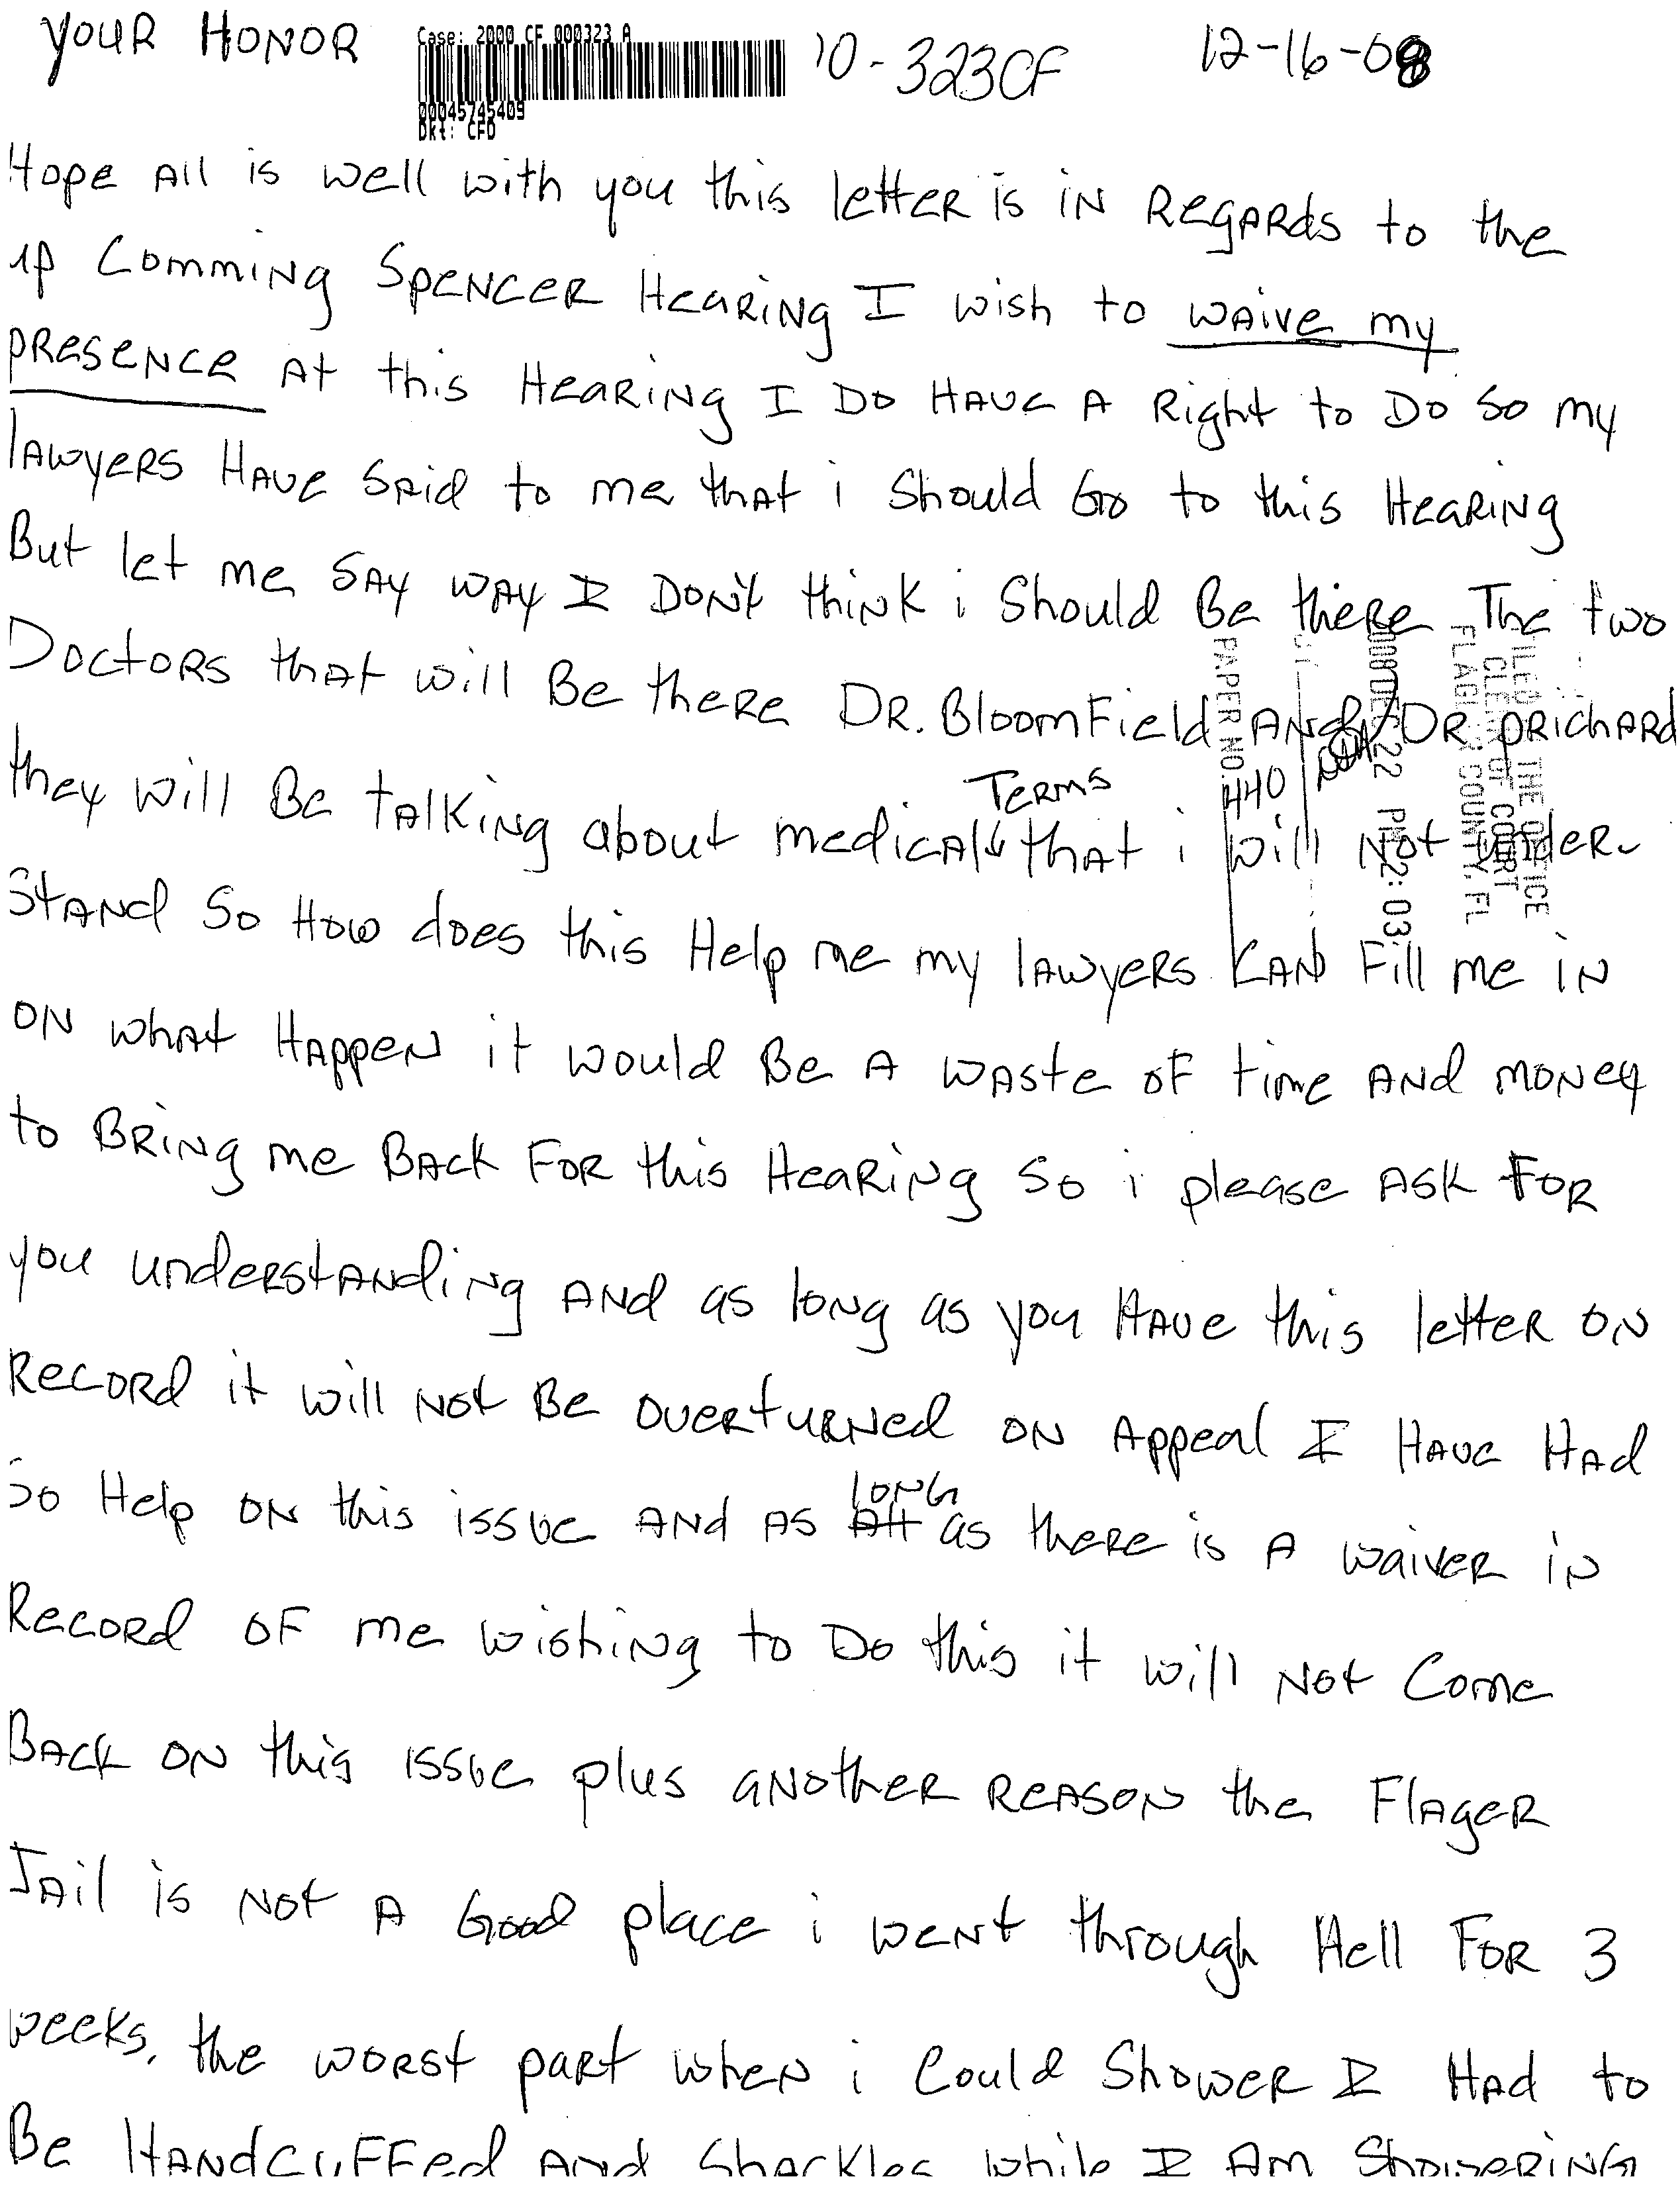 YOUR HONOR
Case: 2000 CF 000323 A
00045745409
Dkt: CFD
10-323CF
12-16-08
Hope All is well with you this letter is in Regards to the
up Comming Spencer Hearing I wish to waive my
presence At this Hearing I Do Have A Right to Do so my
lawyers Have Said to me that i should Go to this Hearing
But let me SAY WAY I Don't think i should Be there The two
Doctors that will Be there DR. Bloomfield And DR PRichARD
they will Be talking about medical Terms that i will Not under-
stand So How does this Help me my lawyers KAN Fill me in
ON what Happen it would Be A waste of time And money
to Bring me Back For this Hearing So i please Ask For
you understanding And as long as you Have this letter on
Record it will Not Be overturned on Appeal I Have Had
So Help on this issue And As long as there is A waiver in
Record of me wishing to Do this it will Not Come
Back on this issue plus another Reason the Flager
Jail is Not A Good place i went through Hell For 3
weeks, the worst part when i Could Shower I Had to
Be Handcuffed And Sharkles while I Am Showering
FILED IN THE OFFICE
CLERK OF COURT
FLAGLER COUNTY, FL
2008 DEC 22 PM 2:03
PAPER NO. 440